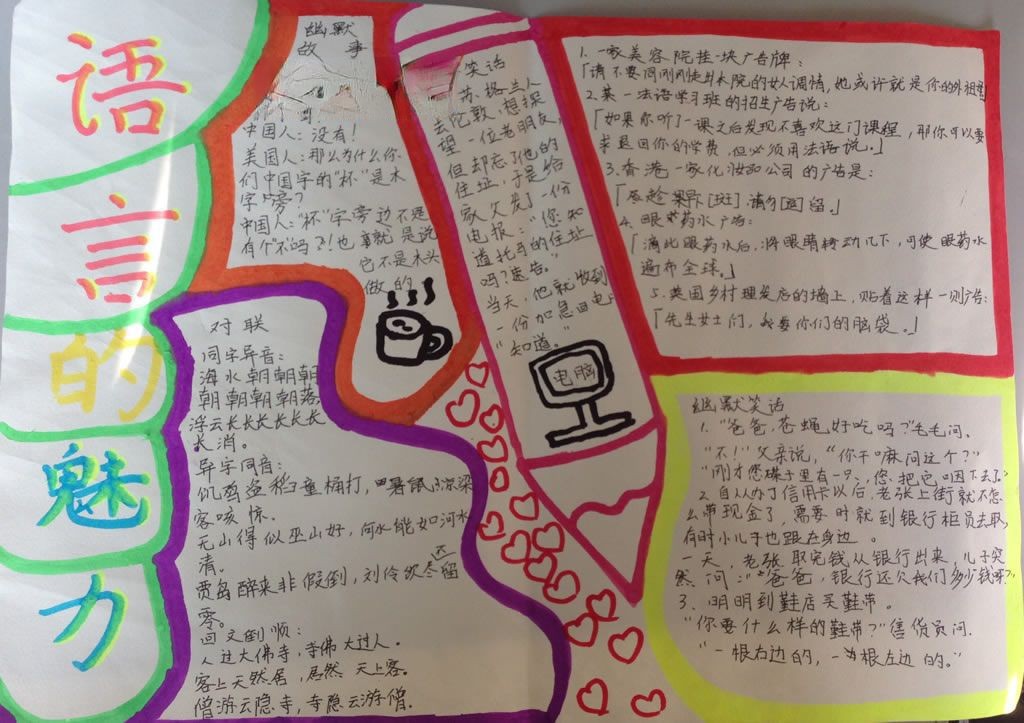 语
言
的
魅
力
幽默
故事
中国人：没有！
美国人：那么为什么你
们中国字的“杯”是木
字旁？
中国人：“杯”字旁边不是
有个“不”吗？！也就是说
它不是木头
做的
笑话
苏格兰人
去伦敦，想探
望一位老朋友，
但却忘了他的
住址，于是给
家父发了一份
电报：“您知
道托马的住址
吗？速告。”
当天，他就收到
一份加急回电：
“知道。”
电脑
1.一家美容院挂块广告牌：
「请不要同刚刚走出本院的女人调情，她或许就是你的外祖
2.某一法语学习班的招生广告说：
「如果你听了一课之后发现不喜欢这门课程，那你可以要
求退回你的学费，但必须用法语说。」
3.香港一家化妆品公司的广告是：
「趁早下[斑]，请勿[逗]留。」
4.眼药水广告：
「滴此眼药水后，将眼睛转动几下，可使眼药水
遍布全球。」
5.美国乡村理发店的墙上，贴着这样一则广告：
「先生女士们，我要你们的脑袋。」
对联
同字异音：
海水朝朝朝朝
朝朝朝朝落，
浮云长长长长长长
长消。
异字同音：
饥鸡盗稻童桶打，暑鼠凉梁
客咳惊。
无山得似巫山好，何水能如河水
清。
贾岛醉来非假倒，刘伶饮尽还留
零。
回文倒顺：
人过大佛寺，寺佛大过人。
客上天然居，居然天上客。
僧游云隐寺，寺隐云游僧。
幽默笑话
1.“爸爸，苍蝇好吃吗？”毛毛问。
“不！”父亲说，“你干嘛问这个？”
“刚才您碟子里有一只，您把它咽下去了。”
2.自从办了信用卡以后，老张上街就不怎
么带现金了，需要时就到银行柜员去取，
有时小儿子也跟在身边。
一天，老张取完钱从银行出来，儿子突
然问：“爸爸，银行还欠我们多少钱呀？”
3、明明到鞋店买鞋带。
“你要什么样的鞋带？”售货员问.
“一根右边的，一根左边的。”